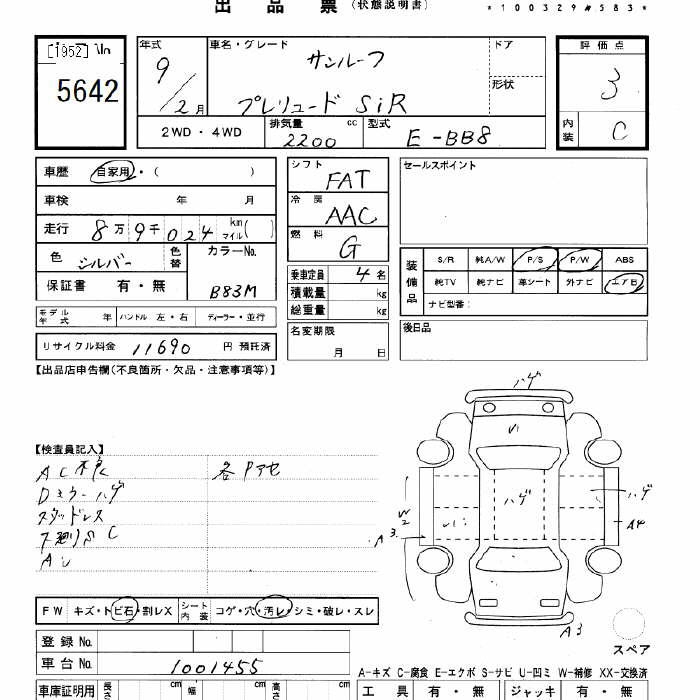 出品票(状態説明書)
*100329#583*
[1952]
5642
年式 9/2月
車名・グレード サンルーフ
プレリュード SiR
ドア
形状
評価点 3
内装 C
2WD・4WD
排気量 2200 cc
型式 E-BB8
車歴 自家用・( )
車検 年 月
走行 8万9千024 km マイル( )
色 シルバー 色替
カラーNo. B83M
保証書 有・無
シフト FAT
冷房 AAC
燃料 G
乗車定員 4名
積載量 kg
総重量 kg
名変期限
月 日
セールスポイント
装備品
S/R 純A/W P/S P/W ABS
純TV 純ナビ 革シート 外ナビ エアB
ナビ型番:
後日品
モデル年式 年 ハンドル 左・右 ディーラー・並行
リサイクル料金 11690 円 預託済
【出品店申告欄(不良箇所・欠品・注意事項等)】
【検査員記入】
AC不良
各Pアセ
Dミラーハゲ
スタッドレス
下廻りS C
ハゲ
ハゲ
ハゲ
W2
A3
A4
A3
スペア
FW キズ・トビ石・割レX
シート内装 コゲ・穴・汚レ・シミ・破レ・スレ
登録No.
車台No. 1001455
A-キズ C-腐食 E-エクボ S-サビ U-凹ミ W-補修 XX-交換済
車庫証明用 長さ cm 幅 cm 高さ cm
工具 有・無 ジャッキ 有・無